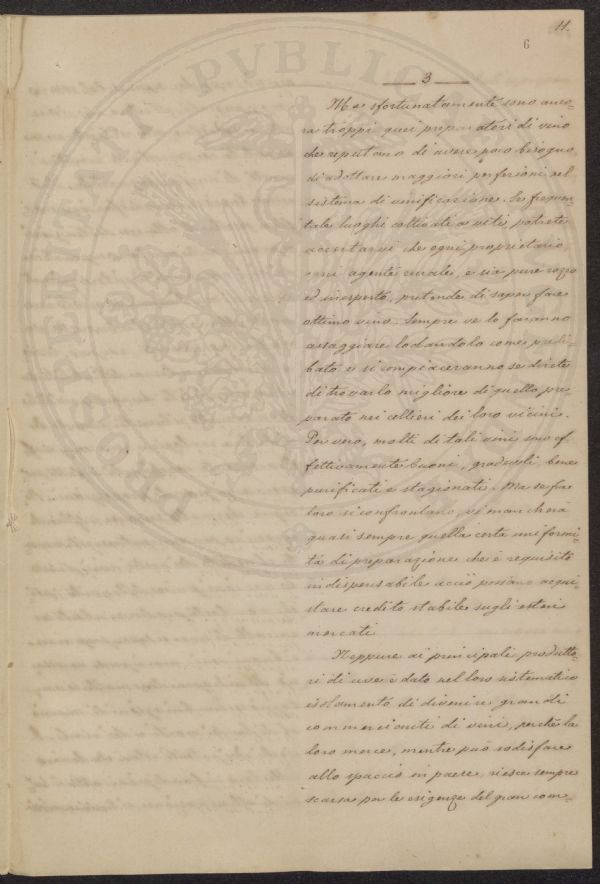 11.
6
— 3 —
Ma sfortunatamente sono anco-
ra troppi quei preparatori di vino
che reputano di avere poco bisogno
di adottare maggiori perfezioni nel
sistema di vinificazione. Se frequen-
tate luoghi coltivati a viti, potrete
accertarvi che ogni proprietario
ogni agente rurale, e sia pure rozzo
ed inesperto, pretende di saper fare
ottimo vino. Sempre ve lo faranno
assaggiare lodandolo come preli-
bato e si compiaceranno se direte
di trovarlo migliore di quello pre-
parato nei cellieri dei loro vicini.
Per vero, molti di tali vini sono ef-
fettivamente buoni, gradevoli, bene
purificati e stagionati. Ma se fra
loro si confrontano, vi mancherà
quasi sempre quella certa uniformi-
tà di preparazione che è requisito
indispensabile acciò possano acqui-
stare credito stabile sugli esteri
mercati
Neppure ai principali produtto-
ri di uve è dato nel loro sistematico
isolamento di divenire grandi
commercianti di vini, perchè la
loro merce, mentre può sodisfare
allo spaccio in paese, riesce sempre
scarsa per le esigenze del gran com-
PROSPERITATI PVBLICAE